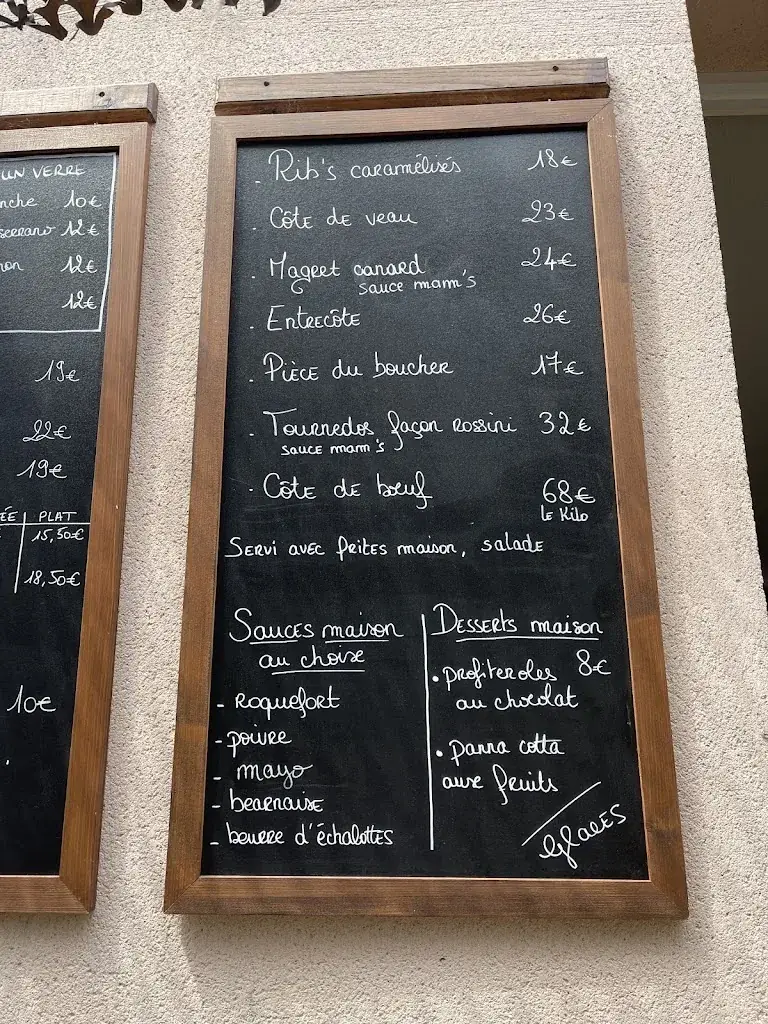 UN VERRE
10€
12€
12€
12€
19€
22€
19€
PLAT
15,50€
18,50€
10€
. Rib's caramélisés 18€
. Côte de veau 23€
. Magret canard 24€
sauce mam's
. Entrecôte 26€
. Pièce du boucher 17€
. Tournedos façon Rossini 32€
sauce mam's
. Côte de bœuf 68€
le Kilo
Servi avec frites maison, salade
Sauces maison
au choise
- roquefort
- poivre
- mayo
- bearnaise
- beurre d'échalottes
Desserts maison
• profiteroles 8€
au chocolat
• panna cotta
aux fruits
glaces